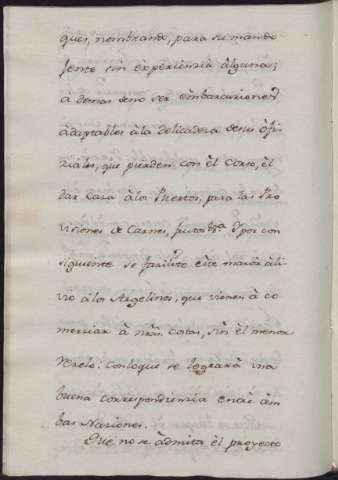 ques, nombrando, para su mando
gente sin experienzia àlguna;
à demas deno ser èmbarcaciones
àdaptables àla delicadeza desus òfi-
ziales, que pierden con èl Corso, èl
dar Caza àlos Puertos, para las Pro-
visiones de Carnes, frutas &ª Y por con
siguiente se facilite èste maior àli-
vio àlos Argelinos, que vienen à co
merciar à nrãs. costas, sin èl menor
rezelo: conloque se logrará una
buena correspondienzia entre àm-
bas Naziones.
Que no se àdmita èl proyecto